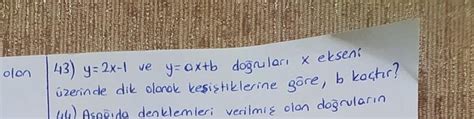 olan
43) y=2x-1 ve y=ax+b doğruları x ekseni
üzerinde dik olarak kesiştiklerine göre, b kaçtır?
44) Aşağıda denklemleri verilmiş olan doğruların